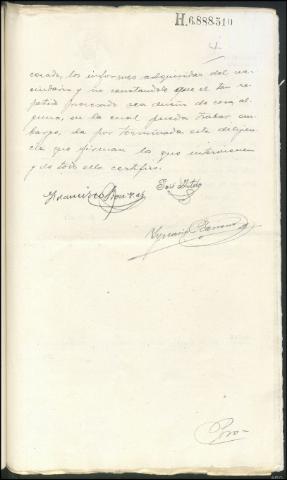 H.6.888.510
cesado, los informes adquiridos del ve-
cindario y no constandole que el tan re-
petido procesado sea dueño de cosa al-
guna, en la cual pueda trabar em-
bargo, da por terminada esta diligen-
cia que firman los que intervienen
y de todo ello certifico.
Francisco José
Ignacio